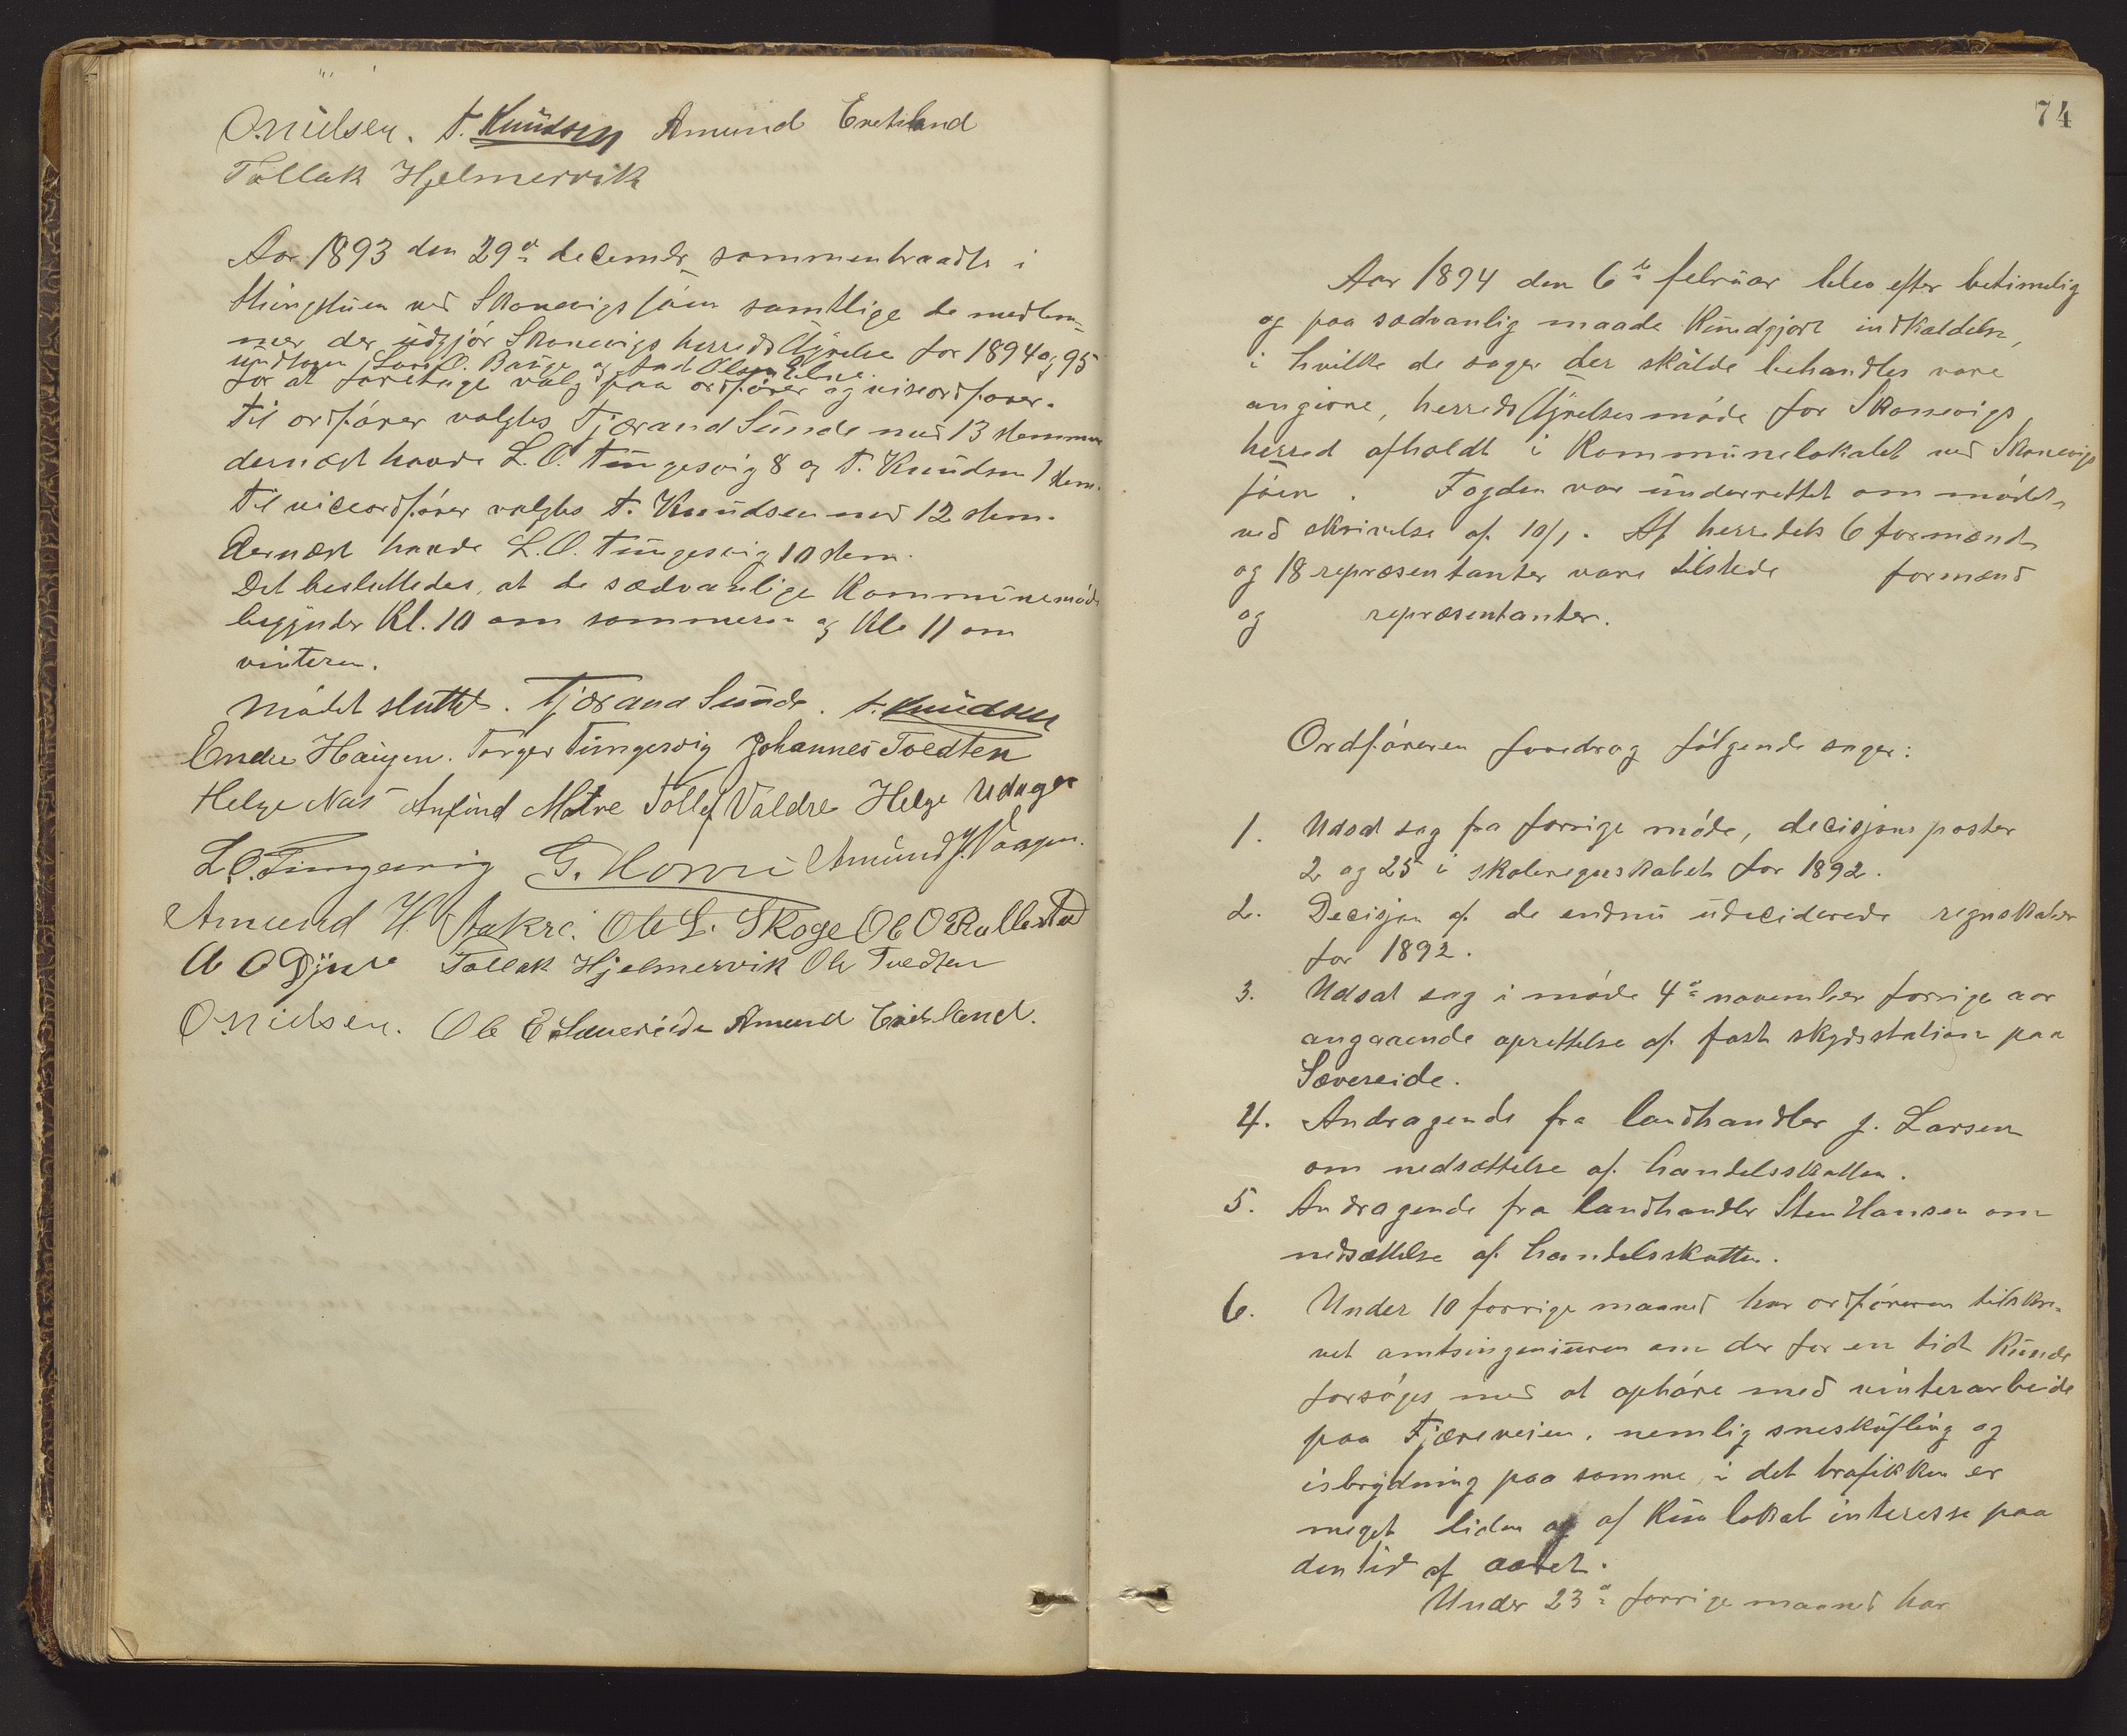 O. Nielsen. T. Knudsen Amund Eretsland
Tollak Hjelmervik
Aar 1893 den 29de decembr sammentraadte i
thingstuen ved Skonevigsjøen samtlige de medlem-
mer der udgjør Skonevigs herredsstyrelse for 1894 og 95
undtagen Lars O. Bauge og And Olsen Ebne
for at foretage valg paa ordfører og viseordfører.
Til ordfører valgtes Tjærand Sunde med 13 stemmer
dernæst havde L. O. Tungesvig 8 og T. Knudsen 1 stem.
Til viceordfører valgtes T. Knudsen med 12 stem.
Dernæst havde L. O. Tungesvig 10 stem.
Det besluttedes, at de sædvanlige kommunemøde
begynder Kl. 10 om sommeren og Kl. 11 om
vinteren.
Mødet sluttet. Tjærand Sunde. T. Knudsen
Endre Haugen. Torger Tungesvig Johannes Tvedten
Helge Næs Anfind Matre Tollef Valdre Helge Udager
L. O. Tungesvig G. Horri Amund J. Vaagen.
Amund H. Aakre. Ole L. Skoge Ole O Rullestad
O O Djuve Tollak Hjelmervik Ole Tvedten
O. Nielsen. Ole E Sævereide Amund Eretsland.
74
Aar 1894 den 6te februar blev efter betimelig
og paa sædvanlig maade kundgjort indkaldelse,
i hvilke de sager der skulde behandles vare
angivne, herredsstyrelsesmøde for Skonevigs
herred afholdt i kommunelokalet ved Skonevigs
jøen. Fogden var underrettet om mødet
ved skrivelse af 10/1. Af herredets 6 formænd
og 18 repræsentanter vare tilstede formænd
og repræsentanter.
Ordføreren foredrog følgende sager:
1. Udsat sag fra forrige møde, decisjons poster
2 og 25 i skoleregnskabet for 1892.
2. Decisjon af de endnu udeciderede regnskaber
for 1892.
3. Udsat sag i møde 4de november forrige aar
angaaende oprettelse af fast skydsstation paa
Sævereide.
4. Andragende fra landhandler J. Larsen
om nedsættelse af handelsskatten.
5. Andragende fra landhandler Sten Hansen om
nedsættelse af handelsskatten.
6. Under 10 forrige maaned har ordføreren tilskre-
vet amtsingeniøren om der for en tid kunde
forsøges med at ophøre med vinterarbeide
paa Fjæreveien, nemlig sneskufling og
isbrydning paa samme, i det trafikken er
meget liden og af kun lokal interesse paa
den tid af aaret.
Under 23de forrige maaned har